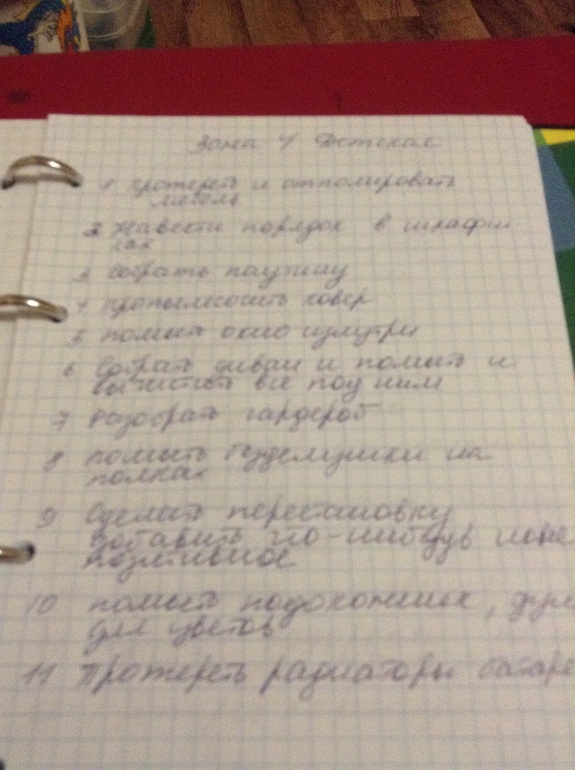 Зона 4 Детская
1 протереть и отполировать
мебель
2 навести порядок в шкафчи
ках
3 собрать паутину
4 пропылесосить ковёр
5 помыть окно изнутри
6 Собрать диван и помыть и
вычистить всё под ним
7 Разобрать гардероб
8 помыть безделушки на
полках
9 Сделать перестановку
добавить что-нибудь
позитивное
10 помыть подоконник,
для цветов
11 Протереть радиаторы